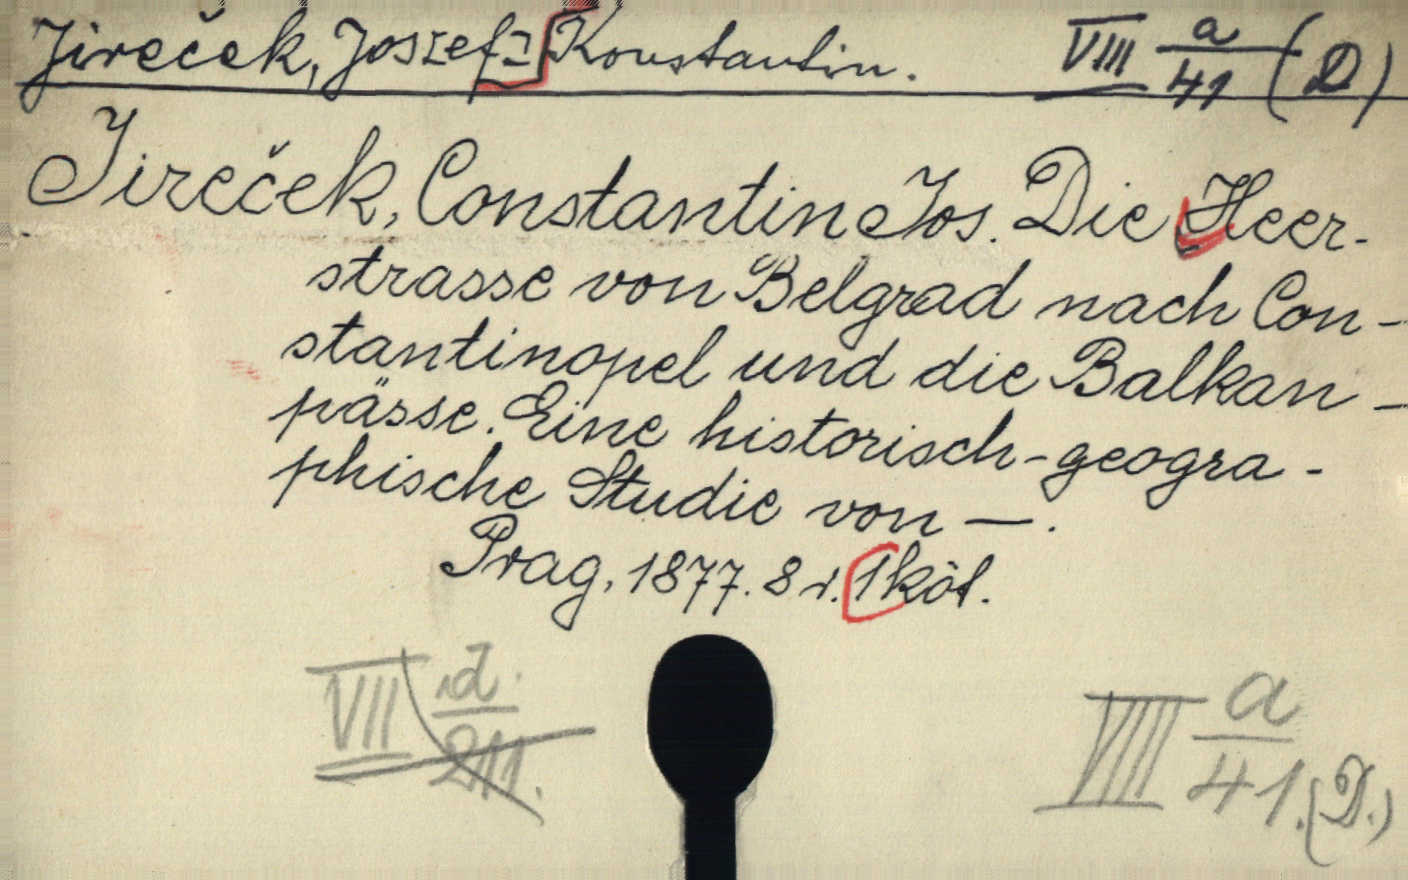 Jireček, Joszef Konstantin. VIII a/41 (D)
Jireček, Constantin Jos. Die Heer-
strasse von Belgrad nach Con-
stantinopel und die Balkan-
pässe. Eine historisch-geogra-
phische Studie von —.
Prag, 1877. 8 r. 1 köt.
VII d./211.
VIII a/41. (D.)